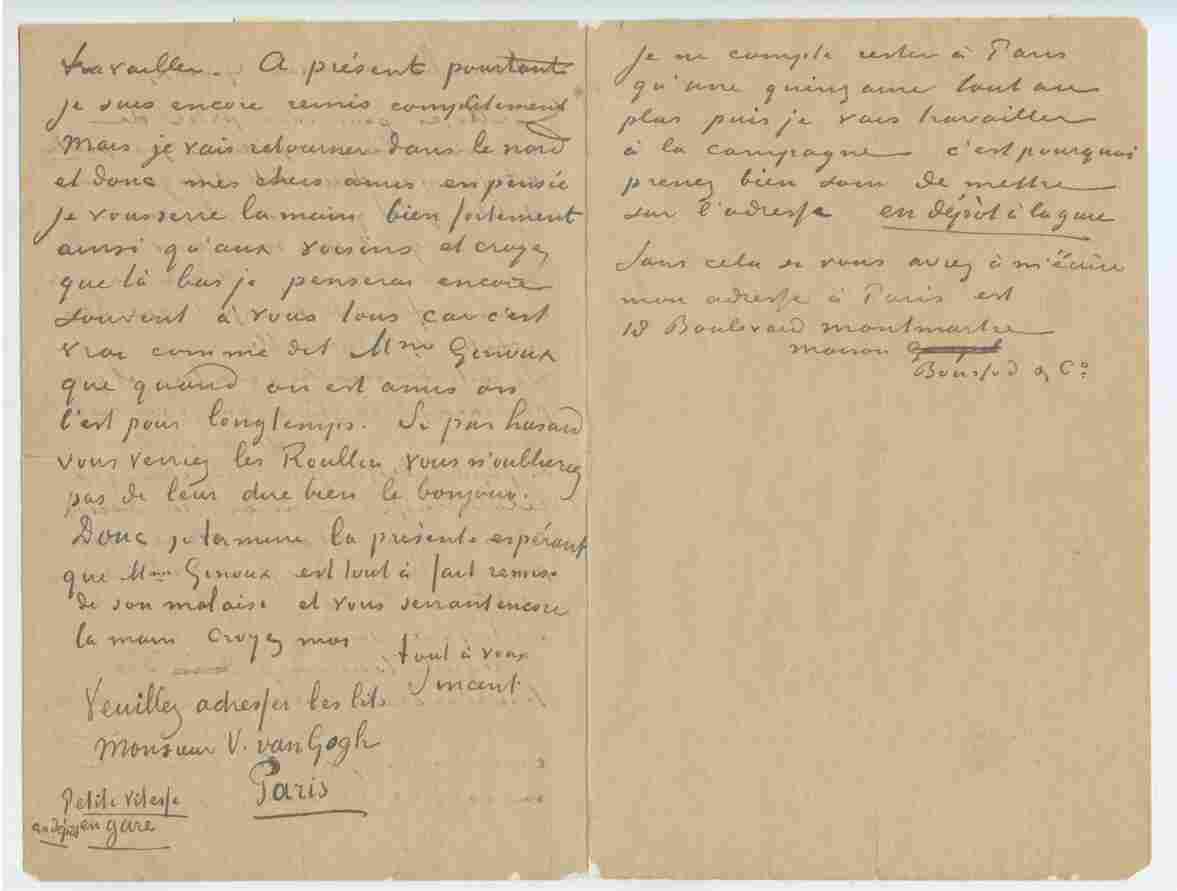 travailler. A présent pourtant
je suis encore remis complètement
Mais je vais retourner dans le nord
et donc mes chers amis en pensée
je vous serre la main bien fortement
ainsi qu'aux voisins et croyez
que là bas je penserai encore
souvent à vous tous car c'est
vrai comme dit Mme Ginoux
que quand on est amis on
l'est pour longtemps. Si par hasard
vous verriez les Roullin vous n'oublierez
pas de leur dire bien le bonjour.
Donc je termine la présente espérant
que Mme Ginoux est tout à fait remise
de son malaise et vous serrant encore
la main Croyez moi
tout à vous
Vincent
Veuillez adresser les lits
Monsieur V. van Gogh
Paris
Petite vitesse
en dépôt en gare
Je ne compte rester à Paris
qu'une quinzaine tout au
plus puis je vais travailler
à la campagne c'est pourquoi
prenez bien soin de mettre
sur l'adresse en dépôt à la gare
Sans cela si vous avez à m'écrire
mon adresse à Paris est
19 Boulevard Montmartre
maison
Boussod & Cº